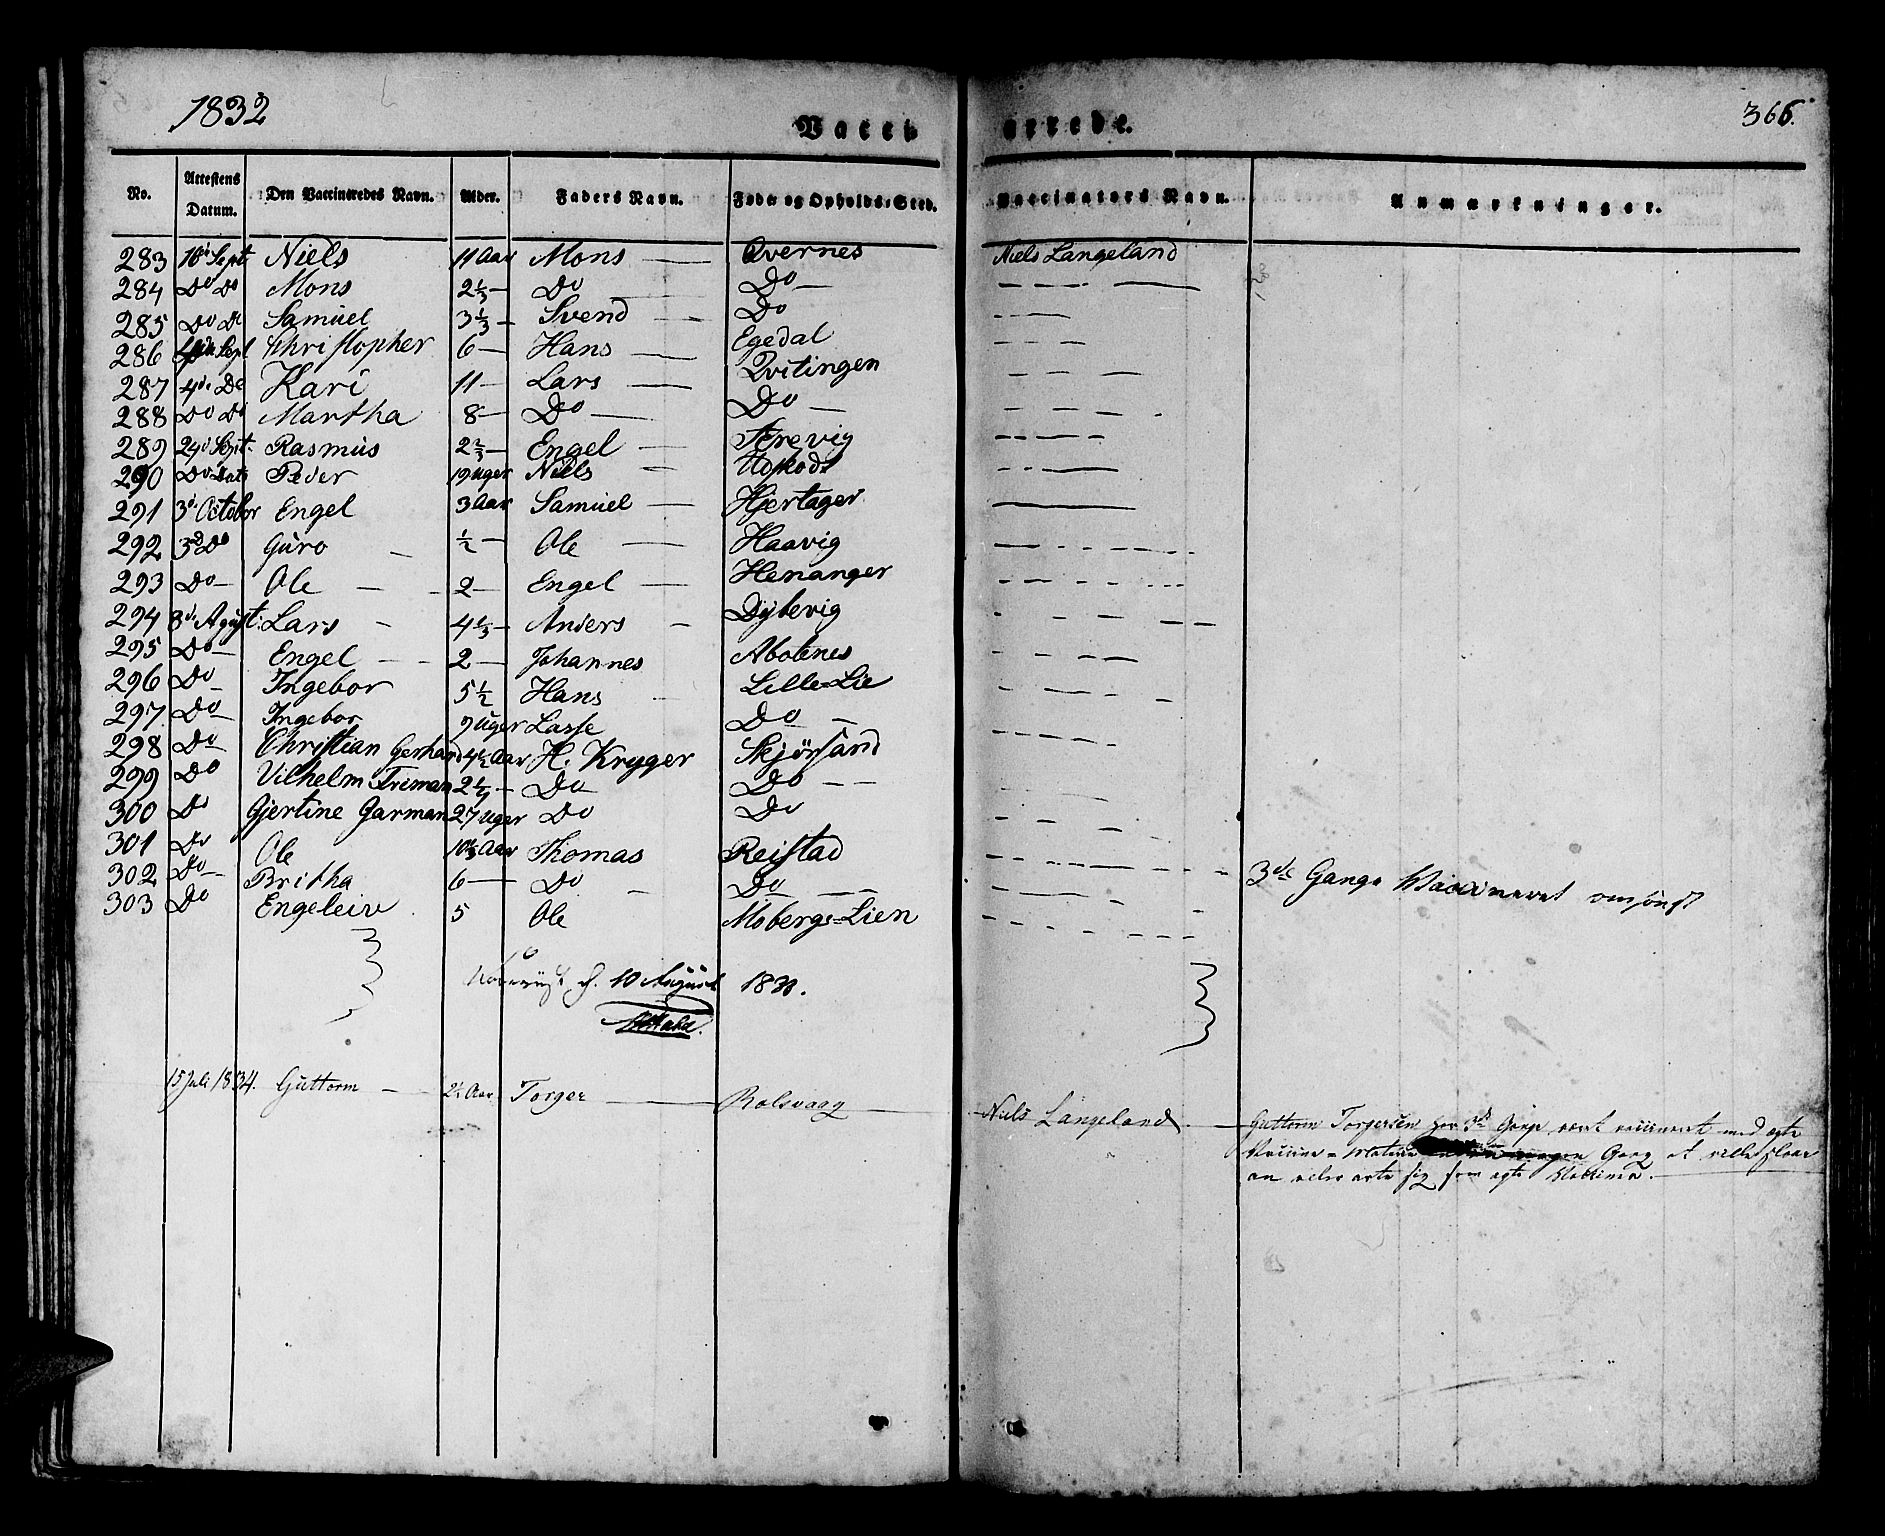 1832
Vaccinerede.
366.
No. Attestens Datum. Den Vaccineredes Navn. Alder. Faders Navn. Føde og Opholds-Sted. Vaccinators Navn. Anmærkninger.
283 16d Sept Niels 11 Aar Mons — Qvernes Niels Langeland
284 Do Do Mons 2 1/3 — Do Do —
285 Do Do Samuel 3 1/3 — Svend — Do
286 Sept Christopher 6 — Hans — Egedal
287 4de Do Kari 11 — Lars — Qvitingen
288 Do Do Martha 8 — Do — Do —
289 24d Sept. Rasmus 2 2/3 — Engel — Strevig
290 Do Dato Peder 19 Uger Niels —
291 3d October Engel 3 Aar Samuel — Hjertager
292 3d Do Guro — 1/2 — Ole — Haavig
293 Do — Ole — 2 — Engel — Henanger
294 8d Agust: Lars — 4 1/3 — Anders — Dybevig
295 Do — Engel — 2 — Johannes Abotenes
296 Do — Ingebor 5 1/2 Hans Lille-Lie
297 Do — Ingebor 9 Uger Lasse Do —
298 Do — Christian Gerhard 4 1/2 Aar H. Kryger Skjørsand
299 Do Vilhelm Friman 2 1/9 — Do Do —
300 Do Gjertine Garman 27 Uger Do Do
301 Do Ole 10 1/3 Aar Thomas Reistad
302 Do — Britha 6 — Do — Do — 3de Gange Vaccineret omsonst
303 Do Engeleiv 5 Ole Mobergs-Lien
10 August 1833.
15 Juli 1834. Guttorm — 2 1/2 Aar Torger — Rolsvaag — Niels Langeland — Guttorm Torgersen har 3de Gang været vaccineret med ægte
Vaccine-Materie Gang at ville slaae
an eller arte sig som ægte Vaccine. —